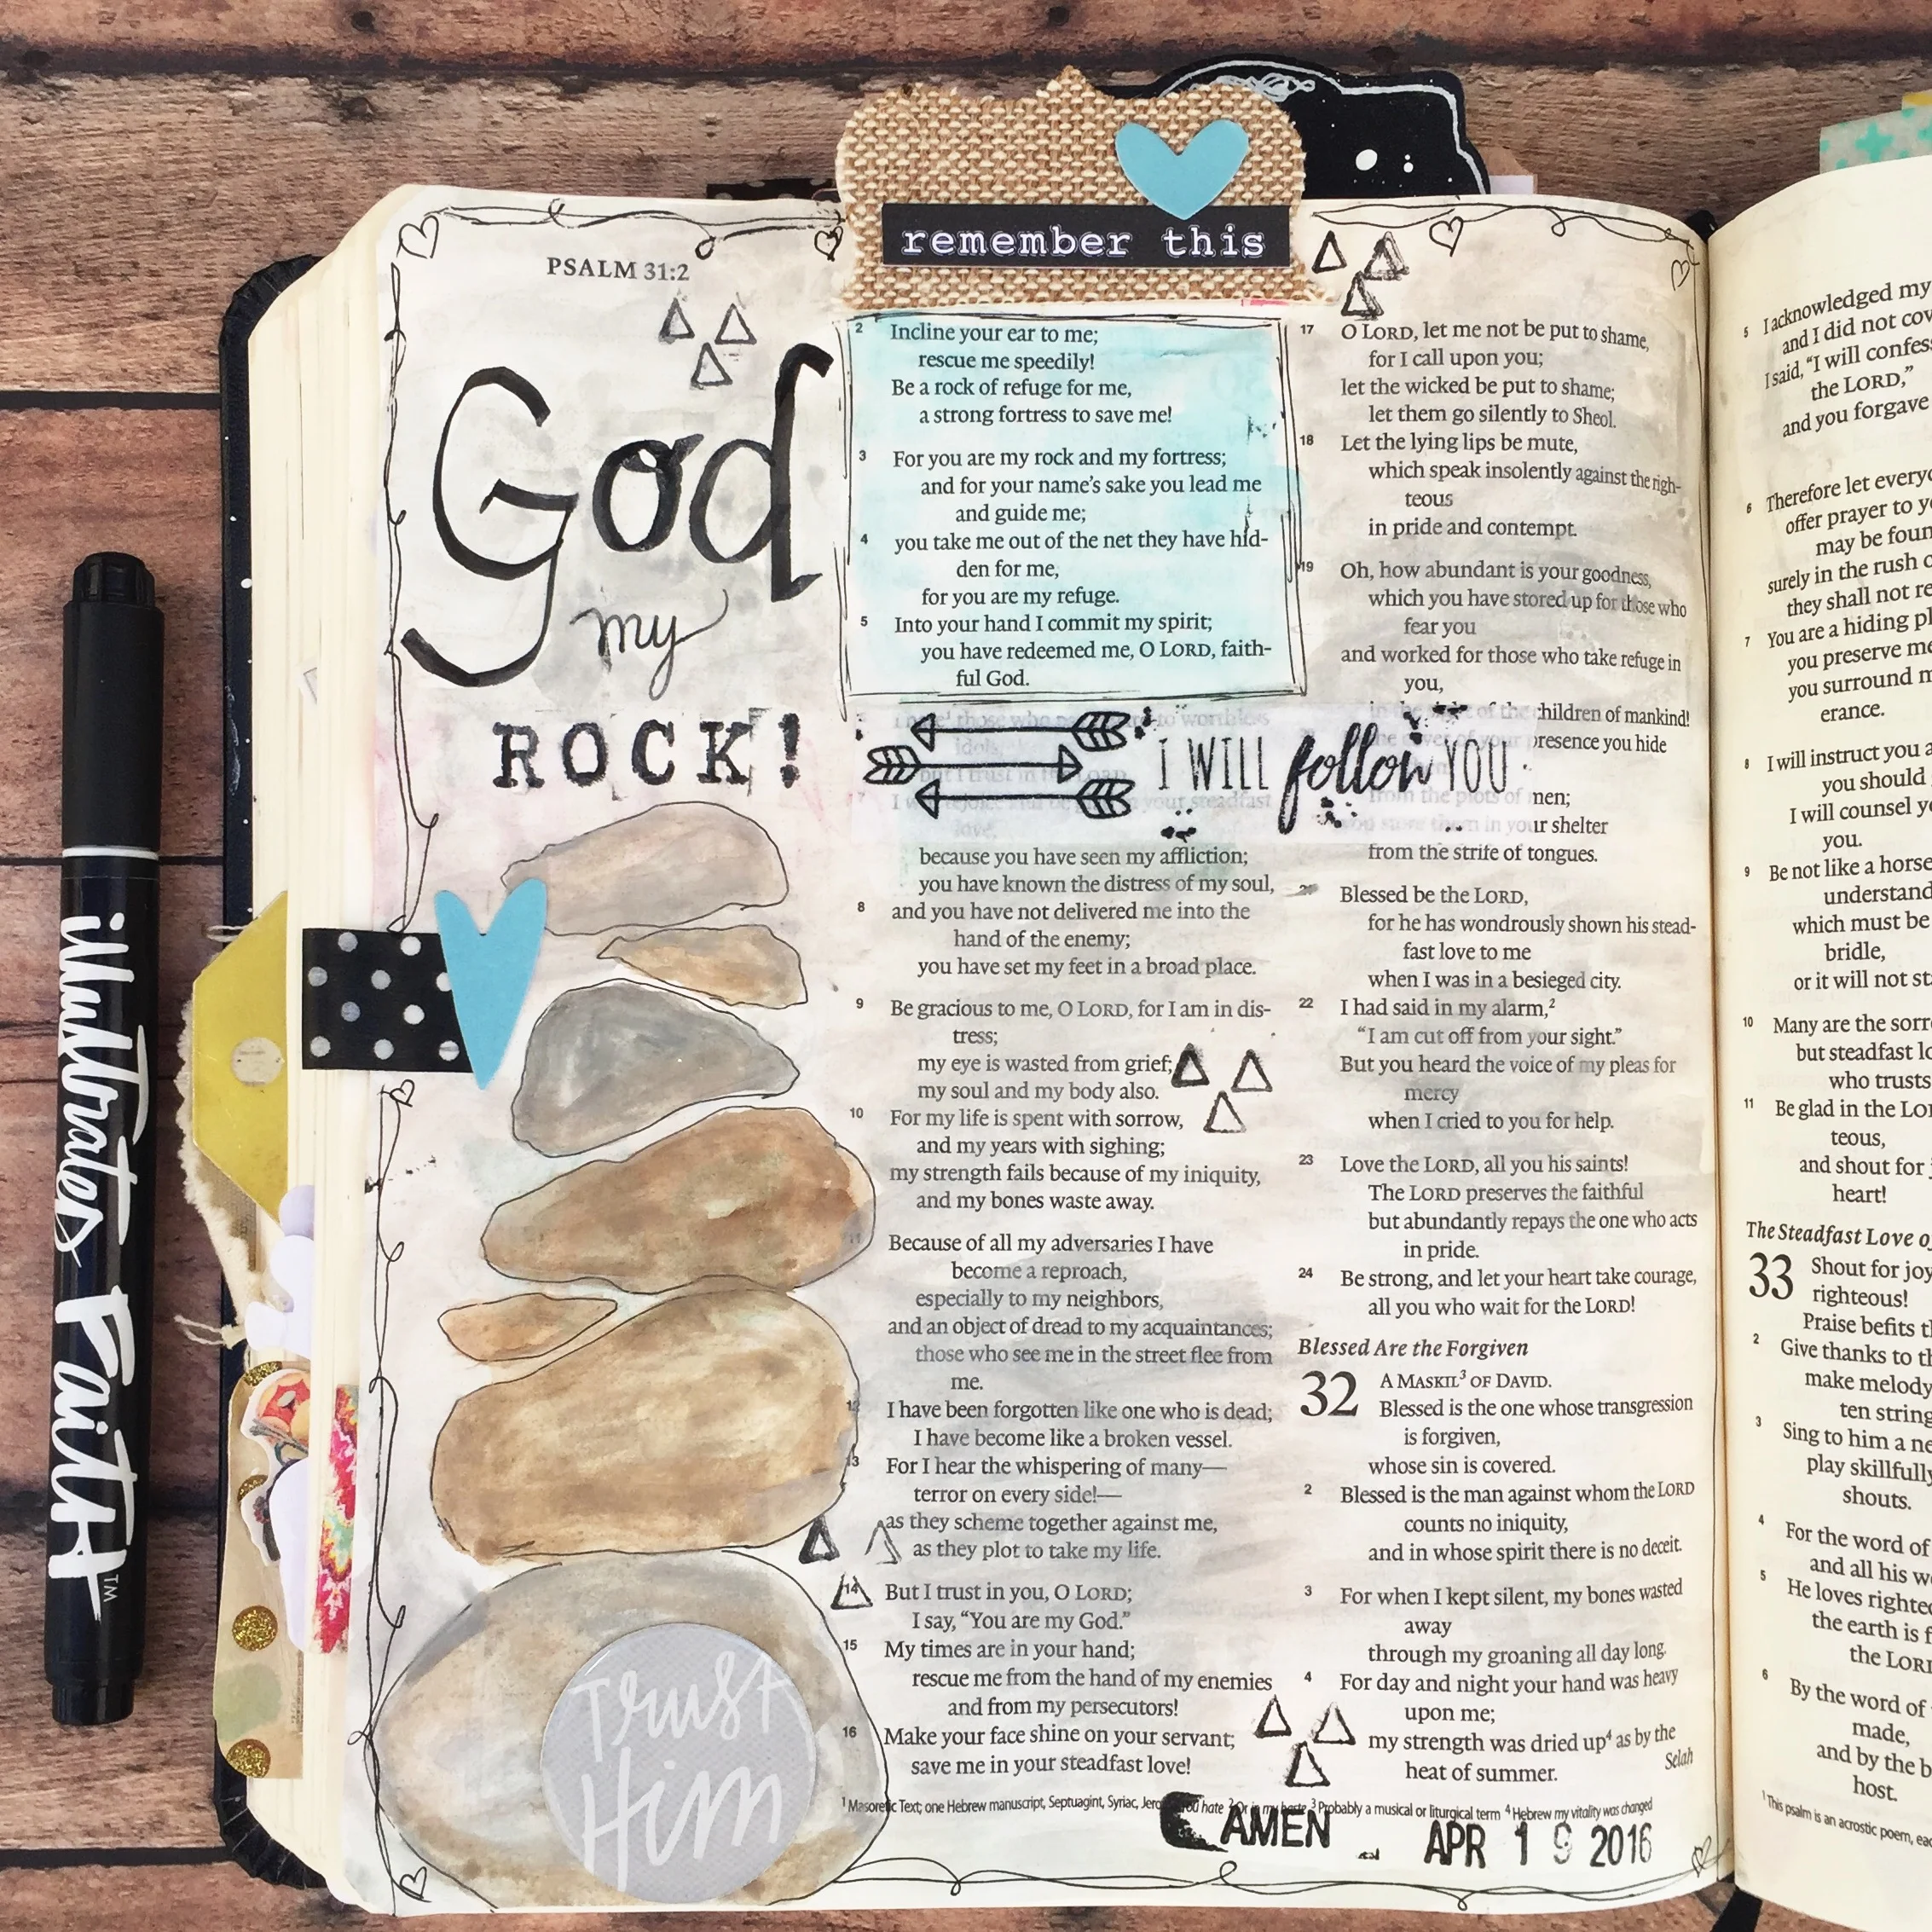 remember this
PSALM 31:2
God
my
ROCK!
2 Incline your ear to me;
rescue me speedily!
Be a rock of refuge for me,
a strong fortress to save me!
3 For you are my rock and my fortress;
and for your name's sake you lead me
and guide me;
4 you take me out of the net they have hid-
den for me,
for you are my refuge.
5 Into your hand I commit my spirit;
you have redeemed me, O LORD, faith-
ful God.
those who to worthless
idols,
but I trust in the LORD.
7 I your steadfast
love,
I WILL follow YOU
because you have seen my affliction;
you have known the distress of my soul,
8 and you have not delivered me into the
hand of the enemy;
you have set my feet in a broad place.
9 Be gracious to me, O LORD, for I am in dis-
tress;
my eye is wasted from grief;
my soul and my body also.
10 For my life is spent with sorrow,
and my years with sighing;
my strength fails because of my iniquity,
and my bones waste away.
11 Because of all my adversaries I have
become a reproach,
especially to my neighbors,
and an object of dread to my acquaintances;
those who see me in the street flee from
me.
12 I have been forgotten like one who is dead;
I have become like a broken vessel.
13 For I hear the whispering of many—
terror on every side!—
as they scheme together against me,
as they plot to take my life.
14 But I trust in you, O LORD;
I say, “You are my God.”
15 My times are in your hand;
rescue me from the hand of my enemies
and from my persecutors!
16 Make your face shine on your servant;
save me in your steadfast love!
17 O LORD, let me not be put to shame,
for I call upon you;
let the wicked be put to shame;
let them go silently to Sheol.
18 Let the lying lips be mute,
which speak insolently against the righ-
teous
in pride and contempt.
19 Oh, how abundant is your goodness,
which you have stored up for those who
fear you
and worked for those who take refuge in
you,
in the of the children of mankind!
the of your presence you hide
from the plots of men;
you store them in your shelter
from the strife of tongues.
Blessed be the LORD,
for he has wondrously shown his stead-
fast love to me
when I was in a besieged city.
22 I had said in my alarm,2
“I am cut off from your sight.”
But you heard the voice of my pleas for
mercy
when I cried to you for help.
23 Love the LORD, all you his saints!
The LORD preserves the faithful
but abundantly repays the one who acts
in pride.
24 Be strong, and let your heart take courage,
all you who wait for the LORD!
Blessed Are the Forgiven
32 A MASKIL3 OF DAVID.
Blessed is the one whose transgression
is forgiven,
whose sin is covered.
2 Blessed is the man against whom the LORD
counts no iniquity,
and in whose spirit there is no deceit.
3 For when I kept silent, my bones wasted
away
through my groaning all day long.
4 For day and night your hand was heavy
upon me;
my strength was dried up4 as by the
heat of summer. Selah
1 Masoretic Text; one Hebrew manuscript, Septuagint, Syriac, hate 2 Or in my haste 3 Probably a musical or liturgical term 4 Hebrew my vitality was changed
AMEN
APR 19 2016
Trust
Him
illustrated FAITH™
5 I acknowledged my
and I did not cov
I said, “I will confess
the LORD,”
and you forgave
6 Therefore let everyo
offer prayer to yo
may be foun
surely in the rush o
they shall not re
7 You are a hiding pl
you preserve me
you surround m
erance.
8 I will instruct you a
you should
I will counsel yo
you.
9 Be not like a horse
understand
which must be
bridle,
or it will not st
10 Many are the sorr
but steadfast lo
who trusts
11 Be glad in the Lor
teous,
and shout for j
heart!
The Steadfast Love o
33 Shout for joy
righteous!
Praise befits t
2 Give thanks to th
make melody
ten string
3 Sing to him a ne
play skillfully
shouts.
4 For the word of
and all his w
5 He loves righteo
the earth is f
the LORD
6 By the word of
made,
and by the b
host.
1 This psalm is an acrostic poem, eac